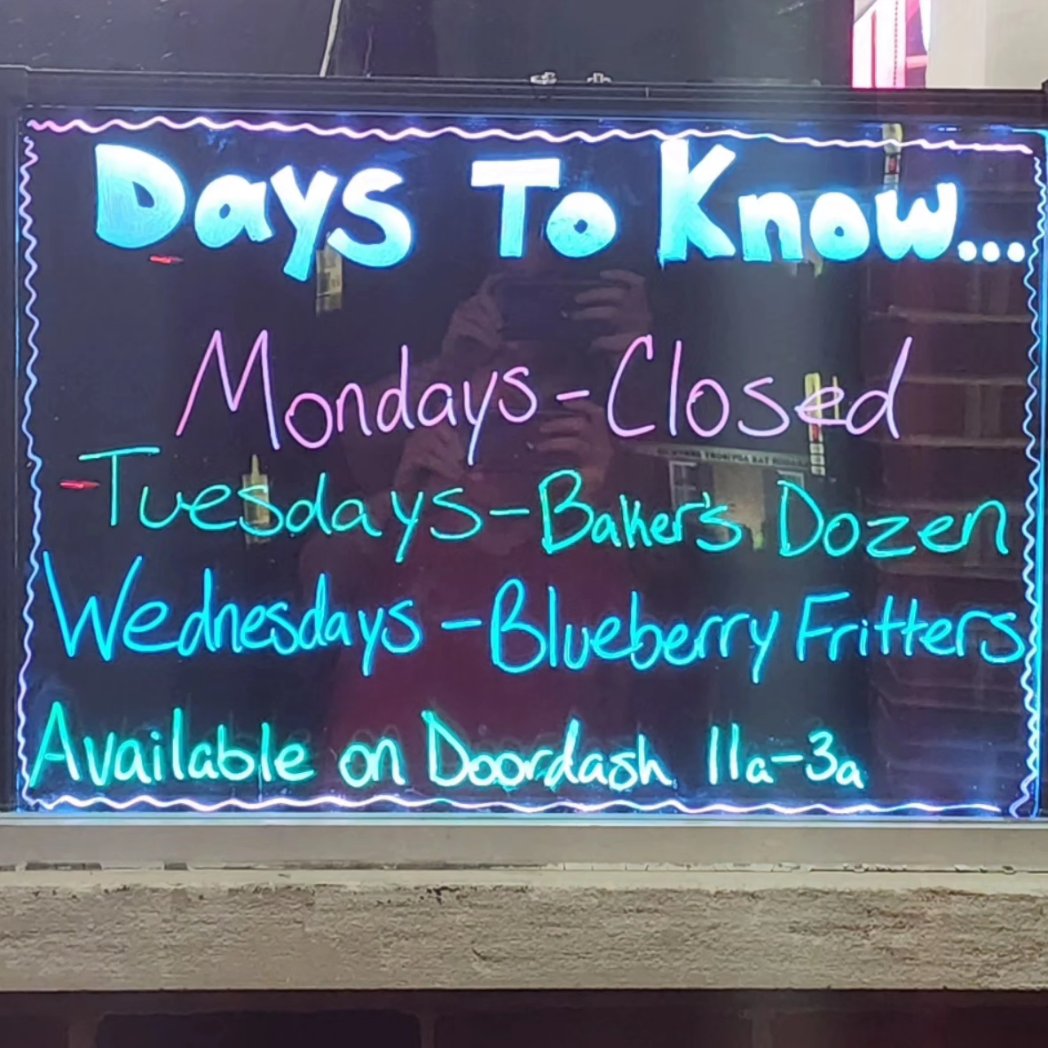 Days To Know...
Mondays-Closed
Tuesdays-Baker's Dozen
Wednesdays-Blueberry Fritters
Available on Doordash 11a-3a